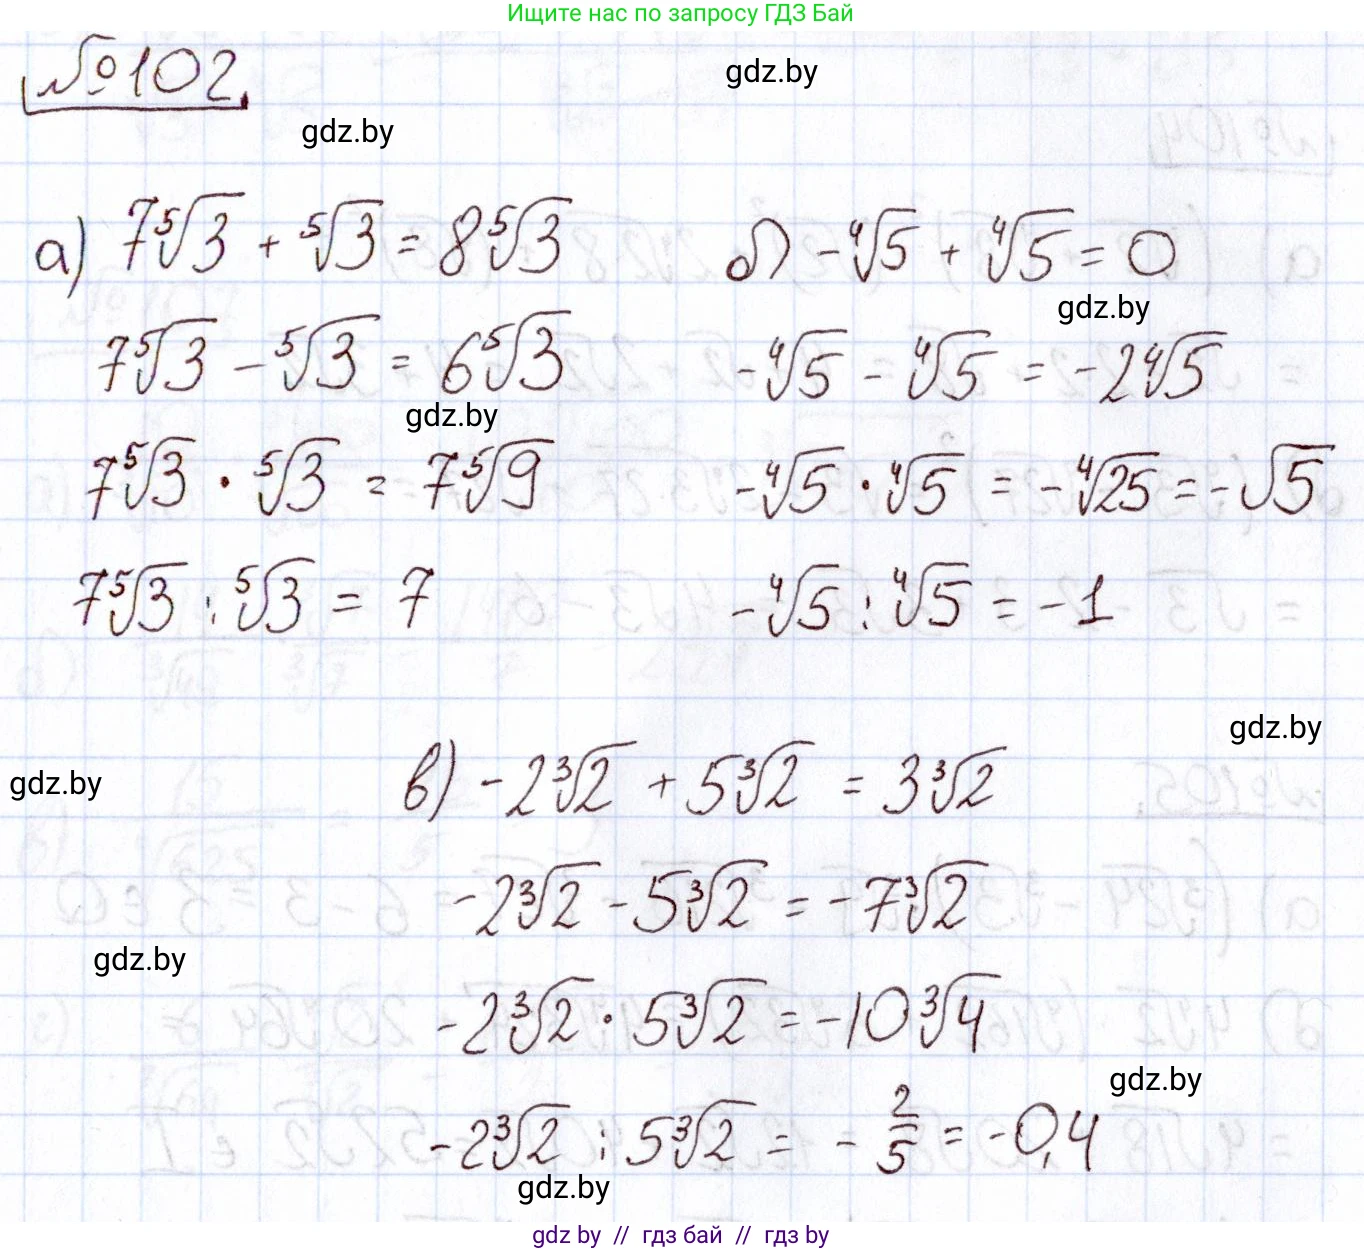 Ищите нас по запросу ГДЗ Бай
№102
gdz.by
gdz.by
а) 7⁵√3 + ⁵√3 = 8⁵√3
б) -⁴√5 + ⁴√5 = 0
gdz.by
7⁵√3 - ⁵√3 = 6⁵√3
-⁴√5 - ⁴√5 = -2⁴√5
gdz.by
7⁵√3 · ⁵√3 = 7⁵√9
-⁴√5 · ⁴√5 = -⁴√25 = -√5
7⁵√3 : ⁵√3 = 7
-⁴√5 : ⁴√5 = -1
gdz.by
gdz.by
в) -2³√2 + 5³√2 = 3³√2
-2³√2 - 5³√2 = -7³√2
gdz.by
-2³√2 · 5³√2 = -10³√4
gdz.by
-2³√2 : 5³√2 = -2/5 = -0,4
gdz.by
gdz by // гдз бай // гдз by